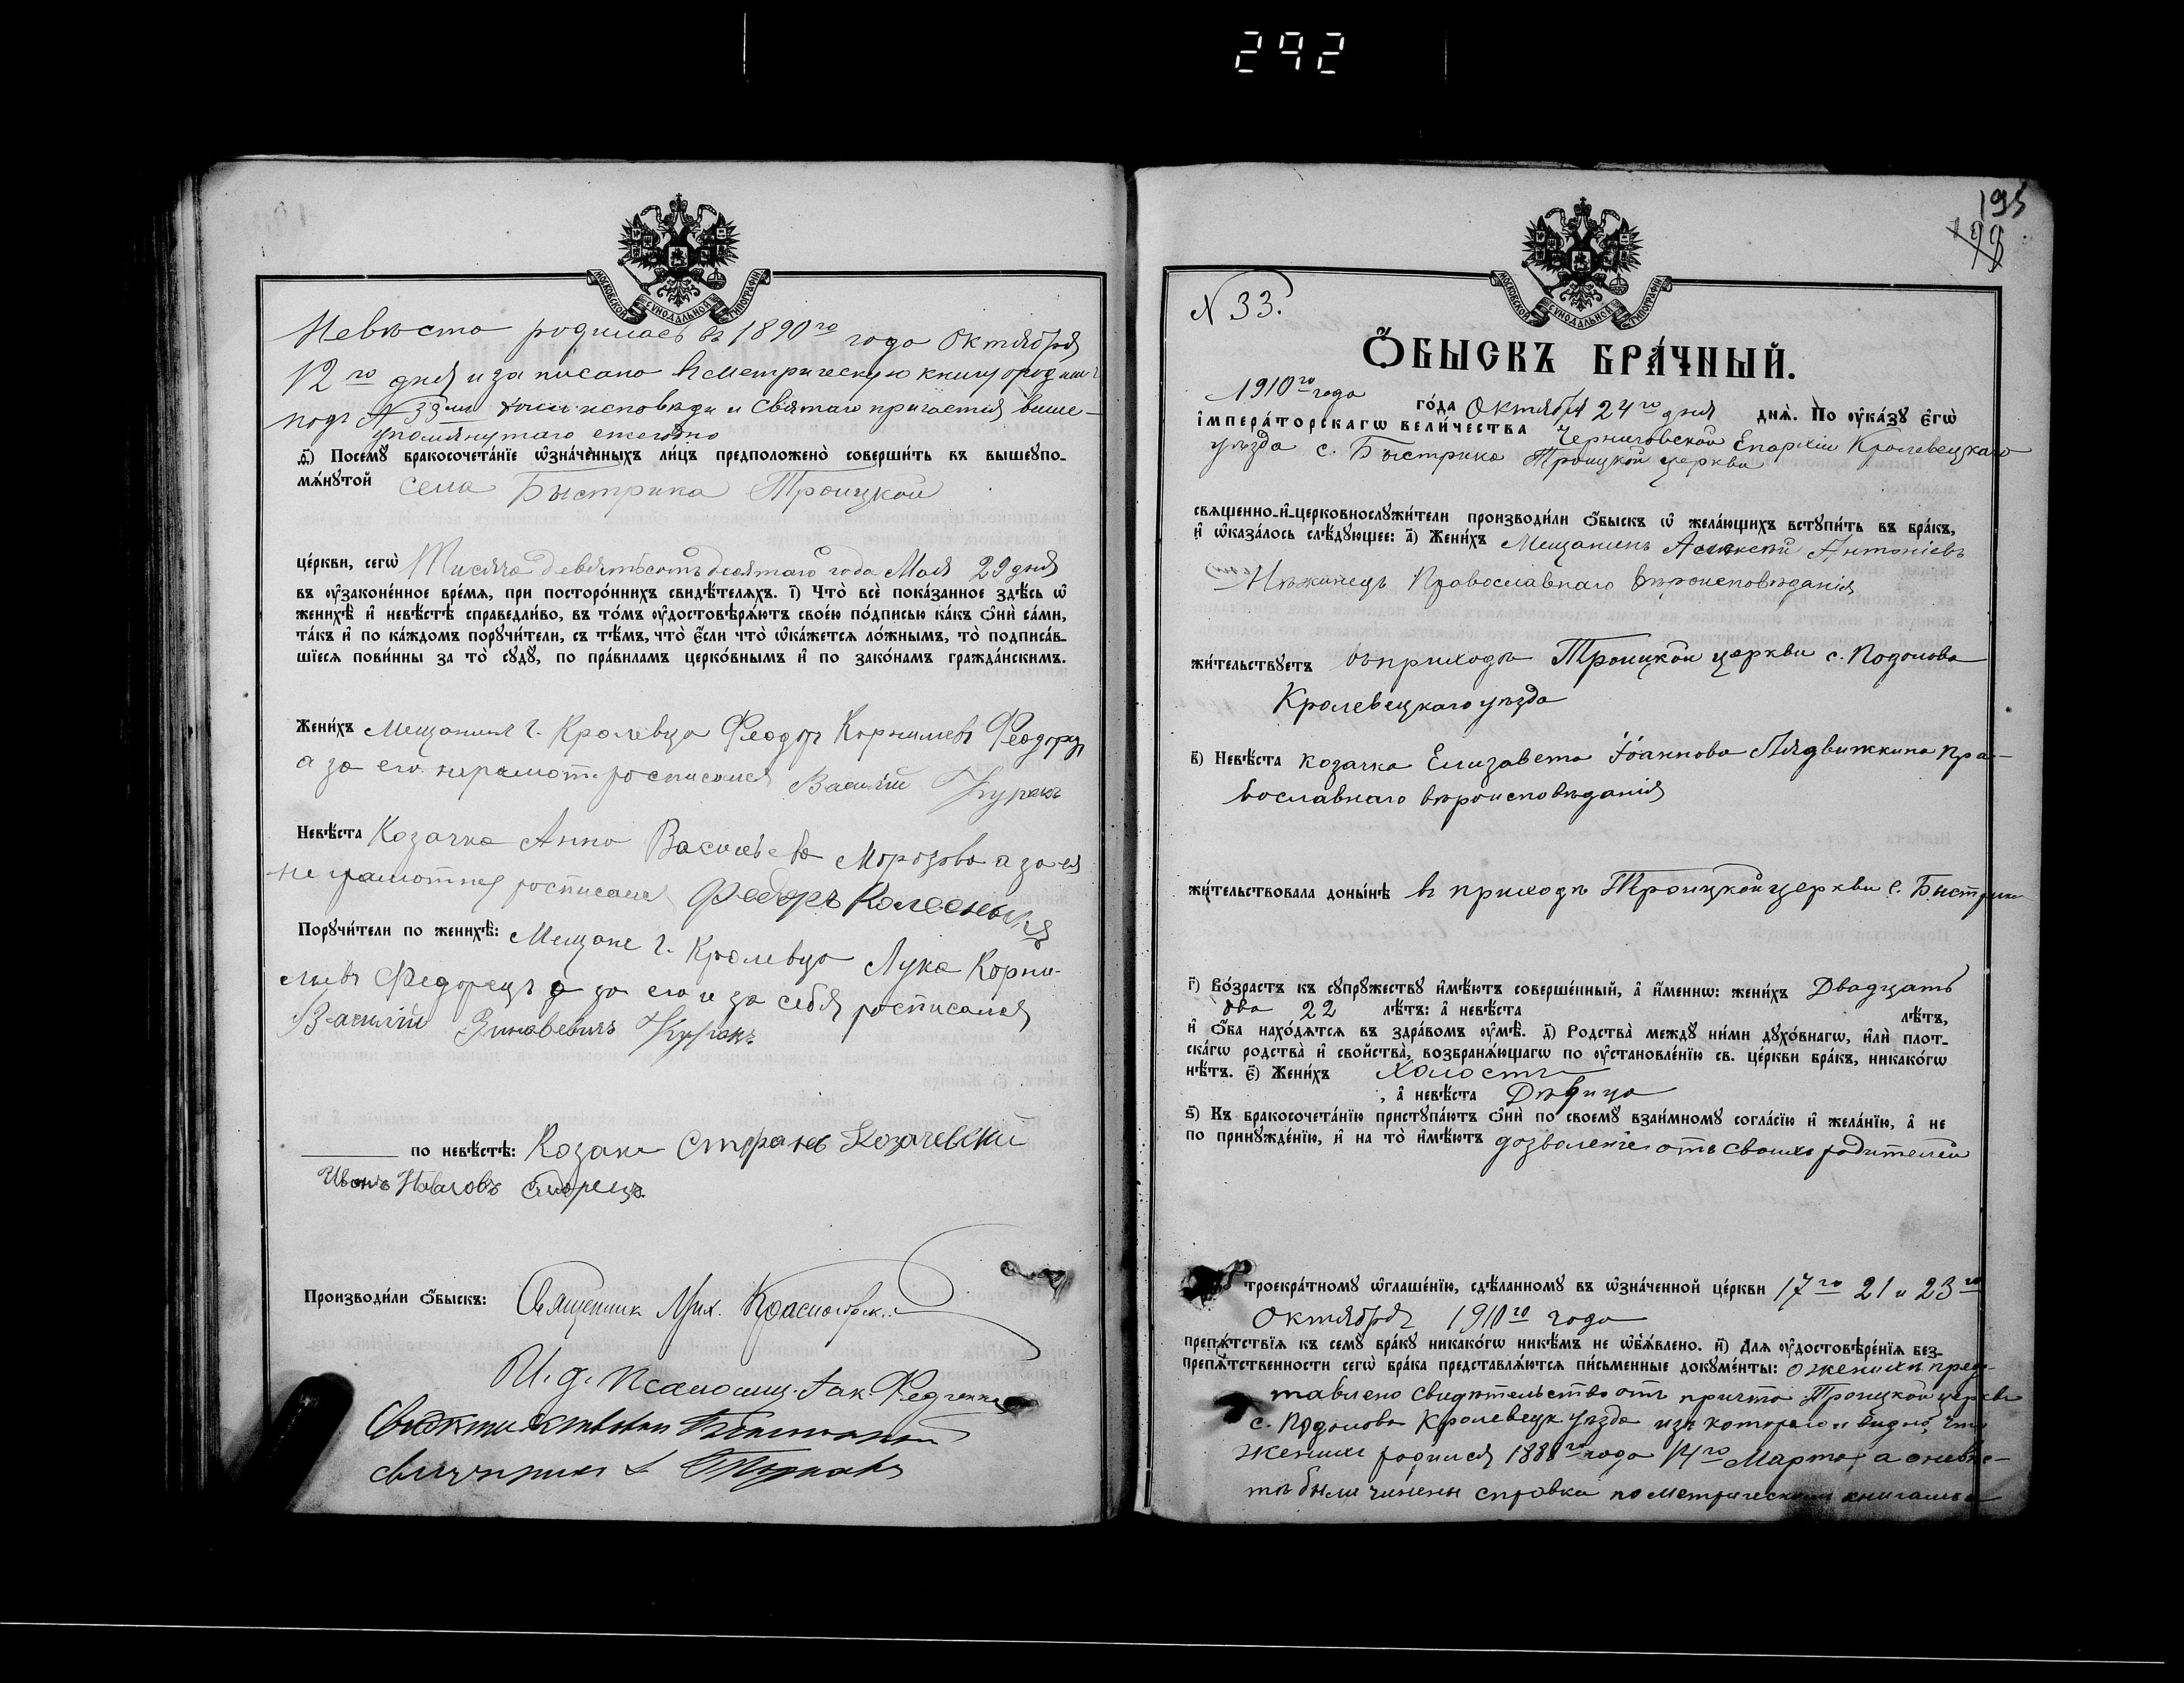 292
МОСКОВСКОЙ СѴНОДАЛЬНОЙ ТИПОГРАФІИ
Невѣста родилась въ 1890го года Октября
12го дня и записано въ метрическую книгу о род.
подъ № 33мъ исповѣди и святаго причастія выше-
упомянутаго ежегодно
ѳ҃) Посемꙋ̀ бракосочета́нїе ѡ҆зна́ченныхъ ли́цъ предположено̀ соверши́ть въ вышеꙋпо-
мѧ́нꙋтой села Быстрика Троицкой
це́ркви, сегѡ̀ Тисяча девятьсотъ десятаго года Мая 29 дня
въ ᲂу҆зако́ненное вре́мѧ, при посторо́ннихъ свидѣ́телѧхъ. і҃) Что̀ всѐ пока́занное здѣ́сь ѡ҆
женихѣ̀ и҆ невѣ́стѣ справедли́во, въ то́мъ ᲂу҆достовѣрѧ́ютъ свое́ю по́дписью ка́къ ѻ҆нѝ са́ми,
та́къ и҆ по ка́ждомъ порꙋчи́тели, съ тѣ́мъ, что̀ є҆́сли что̀ ѡ҆ка́жетсѧ ло́жнымъ, то̀ подписа́в-
шїесѧ пови́нны за то̀ сꙋдꙋ̀, по пра́виламъ церко́внымъ и҆ по зако́намъ гражда́нскимъ.
Жени́хъ Мещанинъ г. Кролевца Феодоръ Корнилiевъ Феодорец
а за его неграмот. росписался Василій Куракъ
Невѣ́ста Козачка Анна Васильева Морозова а за ея
не грамотную росписался Федоръ Колесныкъ
Порꙋчи́тели по женихѣ̀: Мещане г. Кролевца Лука Корни-
лiевъ Федорецъ а за его и за себя росписался
Василій Зиновевичъ Куракъ
по невѣ́стѣ: Козаки Стефанъ Козачевский
Иванъ Павловъ
Производи́ли ѻ҆́быскъ: Священник Мих. Красновск.
И. д. Псаломщ. Іак. Федченко
195
199
МОСКОВСКОЙ СѴНОДАЛЬНОЙ ТИПОГРАФІИ
N 33.
Ѻ҆́БЫСКЪ БРА́ЧНЫЙ.
1910го года го́да Октября 24го дня днѧ̀. По ᲂу҆ка́зꙋ є҆гѡ̀
і҆мпера́торскагѡ вели́чества Черниговской Епархіи Кролевецкаго
уѣзда с. Быстрика Троицкой церкви
свѧще́нно-и҆-церковнослꙋжи́тели производи́ли ѻ҆́быскъ ѡ҆ жела́ющихъ встꙋпи́ть въ бра́къ,
и҆ ѡ҆каза́лось слѣ́дꙋющее: а҃) Жени́хъ Мещанинъ Алексѣй Антоніевъ
Нѣжинецъ Православнаго вѣроисповѣданія
жи́тельствꙋетъ въ приходѣ Троицкой церкви с. Подолова
Кролевецкаго уѣзда
в҃) Невѣ́ста козачка Елизавета Іоаннова Лядвижкина пра-
вославнаго вѣроисповѣданія
жи́тельствовала доны́нѣ въ приходѣ Троицкой церкви с. Быстрика
г҃) Во́зрастъ къ сꙋпрꙋ́жествꙋ и҆мѣ́ютъ соверше́нный, а҆ и҆́меннѡ: жени́хъ Двадцать
два 22 лѣ́тъ: а҆ невѣ́ста лѣ́тъ,
и҆ ѻ҆́ба нахо́дѧтсѧ въ здра́вомъ ᲂу҆мѣ̀. д҃) Родства̀ междꙋ̀ ни́ми дꙋхо́внагѡ, и҆лѝ плот-
ска́гѡ родства̀ и҆ свойства̀, возбранѧ́ющагѡ по ᲂу҆становле́нїю св. це́ркви бра́къ, никако́гѡ
нѣ́тъ. є҃) Жени́хъ Холостъ
, а҆ невѣ́ста Дѣвица
ѕ҃) Къ бракосочета́нїю пристꙋпа́ютъ ѻ҆нѝ по своемꙋ̀ взаи́мномꙋ согла́сїю и҆ жела́нїю, а҆ не
по принꙋжде́нїю, и҆ на то̀ и҆мѣ́ютъ дозволеніе отъ своихъ родителей
троекра́тномꙋ ѡ҆глаше́нїю, сдѣ́ланномꙋ въ ѡ҆зна́ченной це́ркви 17го 21 и 23го
Октября 1910го года
препѧ́тствїѧ къ семꙋ̀ бра́кꙋ никако́гѡ никѣ́мъ не ѡ҆б̾ѧ́влено. и҃) Длѧ ᲂу҆достовѣре́нїѧ без-
препѧ́тственности сегѡ̀ бра́ка представлѧ́ютсѧ пи́сьменные докꙋме́нты: о женихѣ пред-
тавлено свидѣтельство отъ причта Троицкой церкви
с. Подолова Кролевецк уѣзда изъ котораго и видно, что
женихъ родился 1888го года 14го Марта, а о невѣс-
тѣ были чинены справки по метрическимъ книгамъ